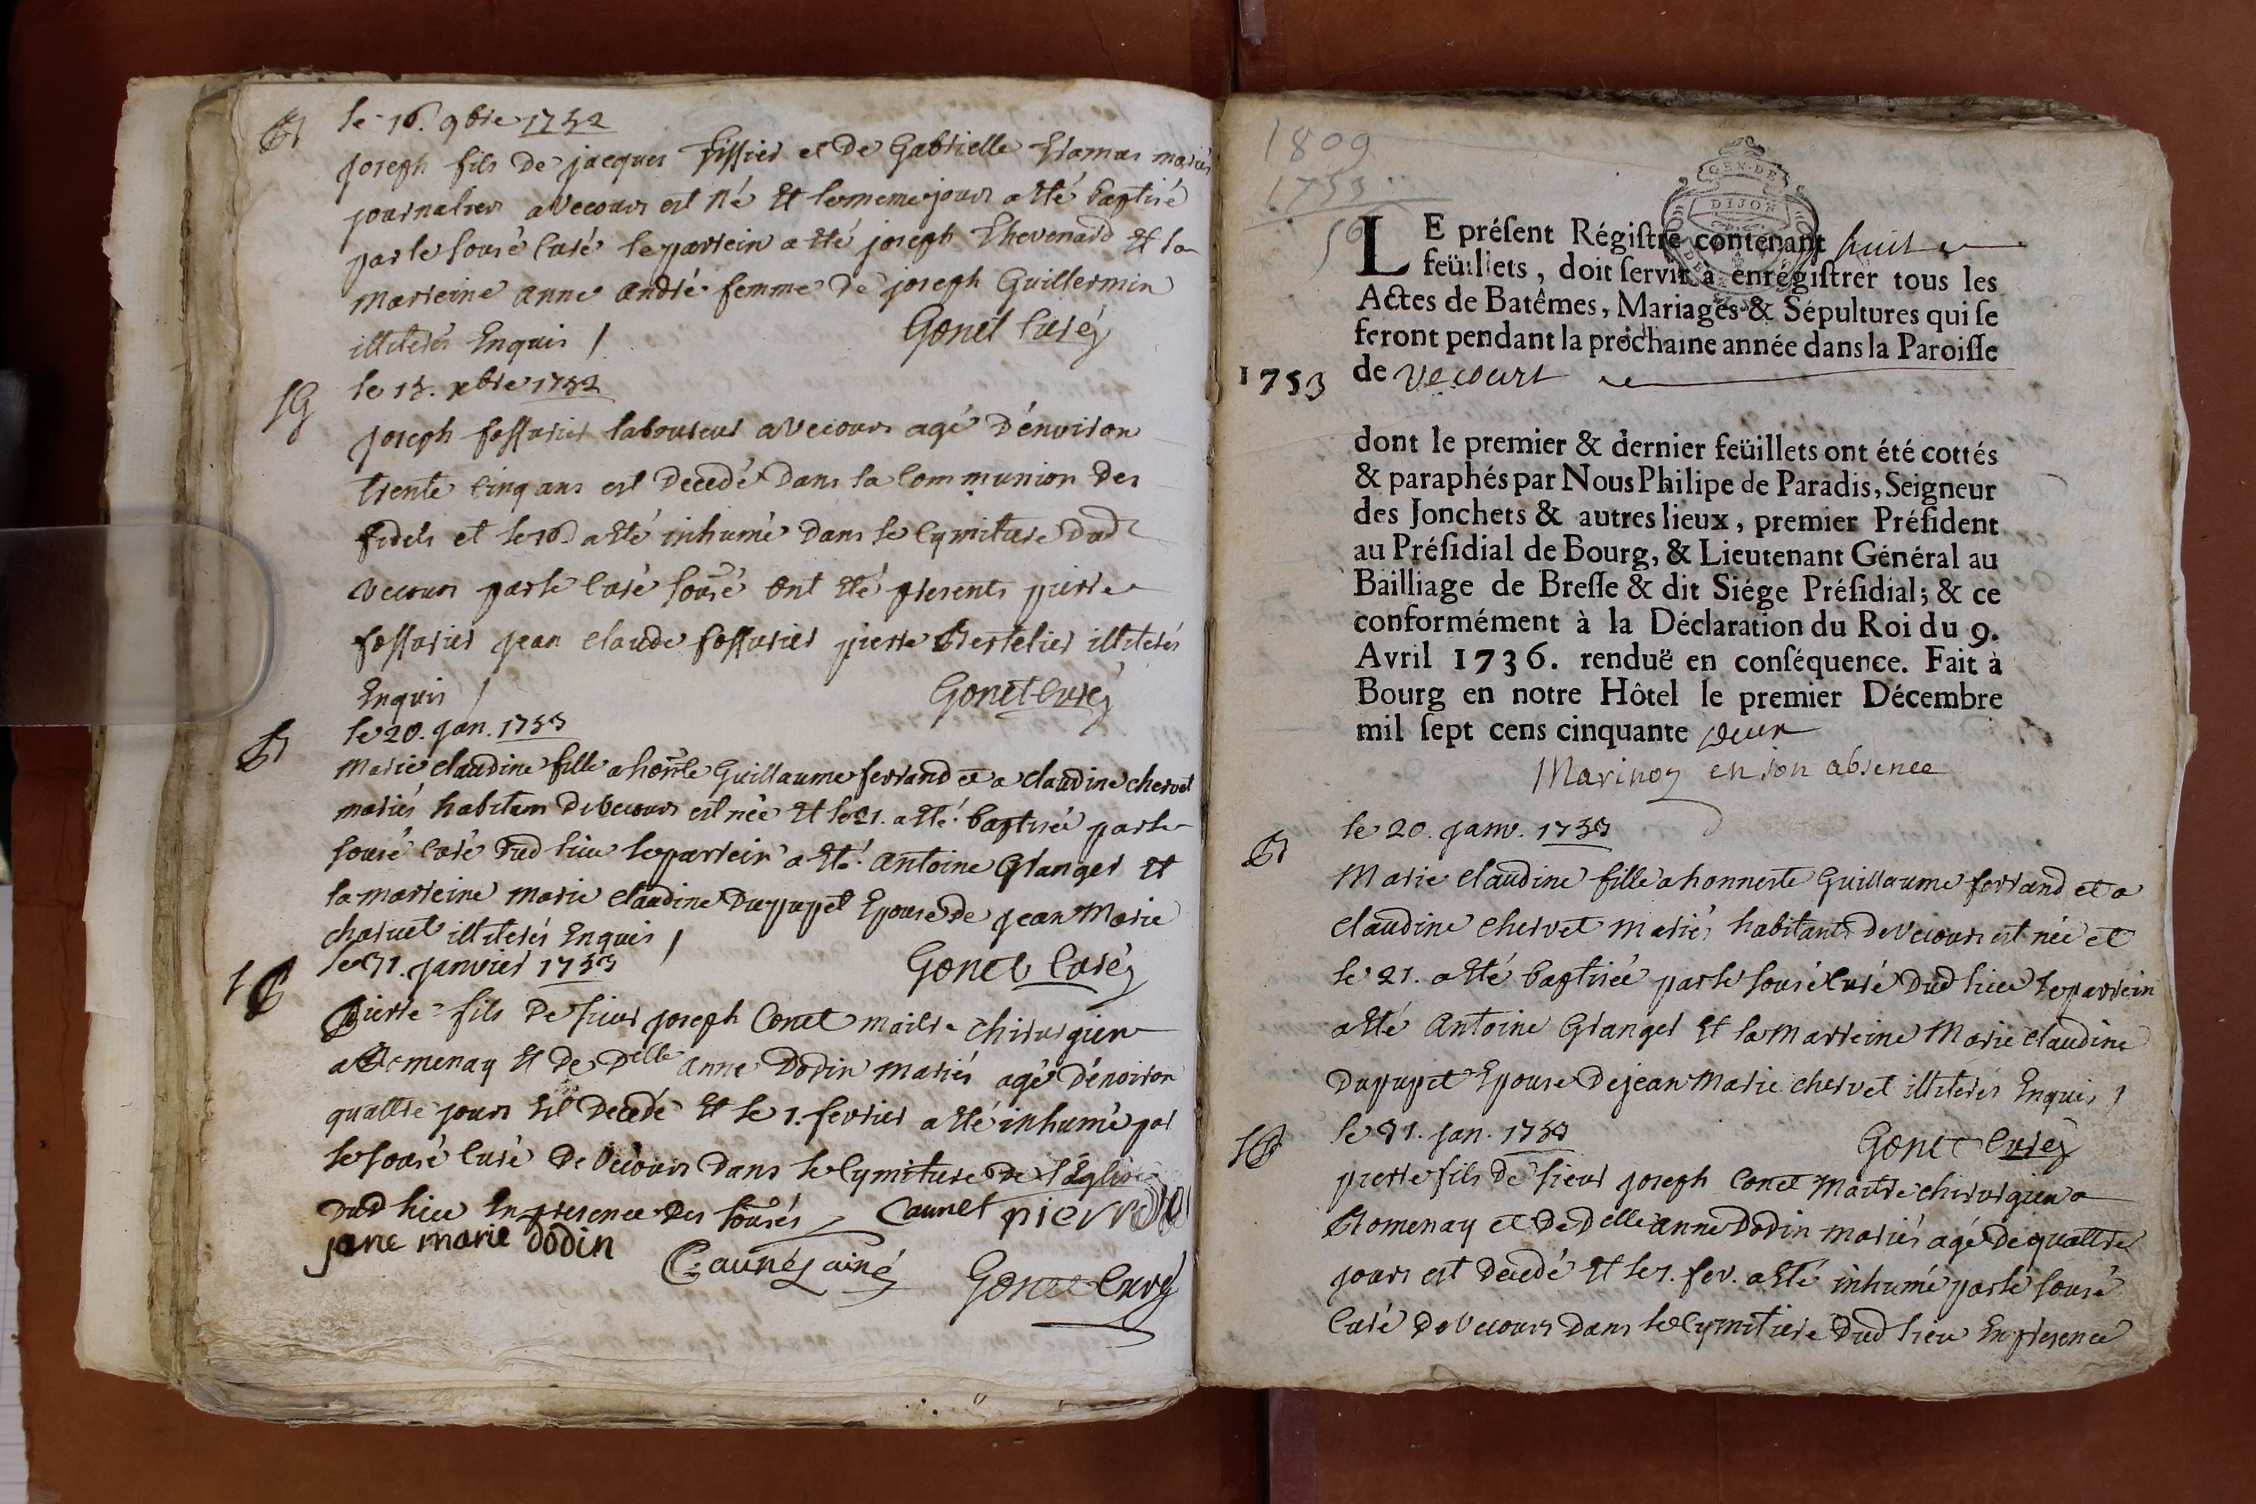 Bt
le 16. 9bre 1752
joseph fils de jacques Tissier et de Gabrielle mariés
journaliers a Vecours est né et le meme jour a eté baptisé
par le sousé Curé le parrein a eté joseph Thevenard et la
marreine anne andré femme de joseph Guillermin
illiterés Enquis /
Gonet Curé
SG
le 15. xbre 1752
joseph fossurier laboureur a Vecours agé d'environ
trente cinq ans est decedé dans la Communion des
fidels et le 16 a eté inhumé dans le Cymitiere dud
Vecours par le Curé sousé ont eté presents pierre
fossurier jean claude fossurier pierre Bertelier illiterés
Enquis /
Gonet Curé
Bt
le 20. jan. 1753
Marie claudine fille a honête Guillaume ferrand et a claudine chervet
mariés habitans de Vecours est née et le 21. a eté baptisée par le
sousé Curé dud lieu le parrein a eté antoine Granger et
la marreine marie claudine Dupupet Epouse de jean Marie
charvet illiterés Enquis /
Gonet Curé
le 31. janvier 1753
pierre fils de sieur joseph Conet maitre chirurgien
a Romenay et de Delle anne Dodin mariés agé d'environ
quattre jours est decedé et le 1. fevrier a eté inhumé par
le sousé Curé de Vecours dans le Cymitiere de l'Eglise
dud lieu En presence des sousés
caunet pierre
jane marie dodin
Gonet Curé
1809
1753
LE présent Régistre contenant huit
feüillets, doit servir à enrégistrer tous les
Actes de Batêmes, Mariages & Sépultures qui se
feront pendant la prochaine année dans la Paroisse
1753
de Vecourt
GEN. DE
DIJON
dont le premier & dernier feüillets ont été cottés
& paraphés par Nous Philipe de Paradis, Seigneur
des Jonchets & autres lieux, premier Président
au Présidial de Bourg, & Lieutenant Général au
Bailliage de Bresse & dit Siége Présidial; & ce
conformément à la Déclaration du Roi du 9.
Avril 1736. renduë en conséquence. Fait à
Bourg en notre Hôtel le premier Décembre
mil sept cens cinquante deux
en son absence
Bt
le 20. janv. 1753
Marie claudine fille a honneste Guillaume ferrand et a
claudine chervet mariés habitants de Vecours est née et
le 21. a eté baptisée par le sousé Curé dud lieu le parrein
a eté Antoine Granger et la Marreine Marie claudine
Dupupet Epouse de jean Marie chervet illiterés Enquis /
Gonet Curé
le 31. jan. 1753
pierre fils de sieur joseph Conet Maitre chirurgien a
Romenay et de Delle anne Dodin mariés agé de quattre
jours est decedé et le 1. fev. a eté inhumé par le sousé
Curé de Vecours dans le Cymitiere dud lieu En presence